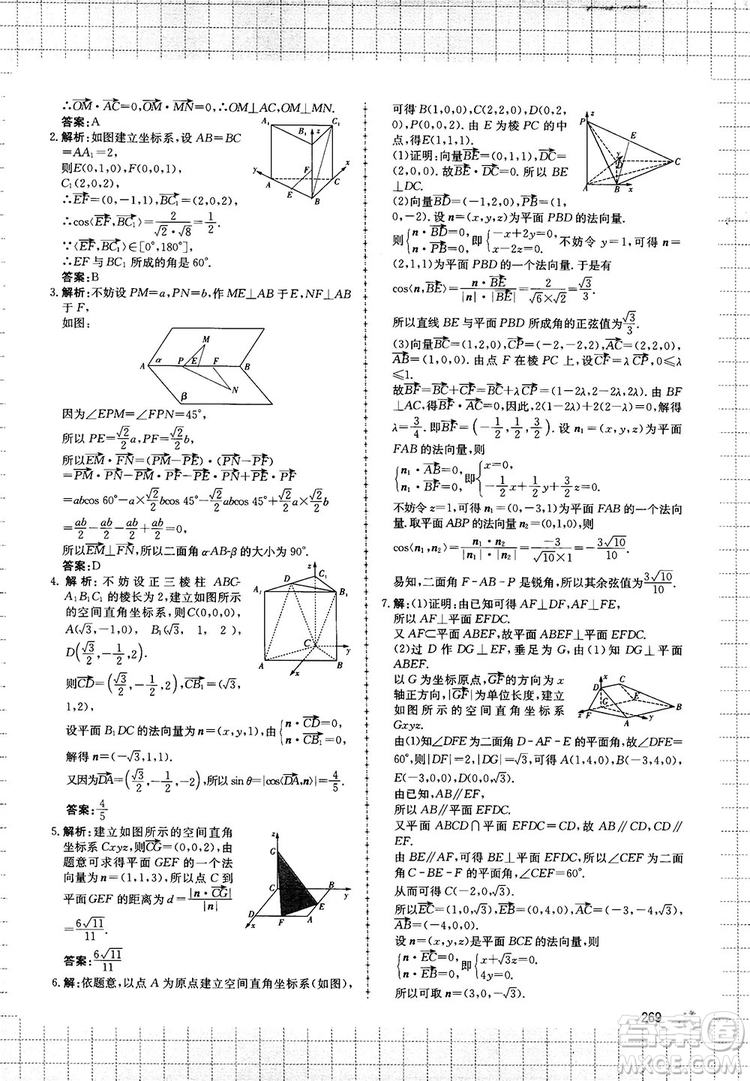 ∴OM·AC=0,OM·MN=0.∴OM⊥AC,OM⊥MN.
答案:A
2.解析:如图建立坐标系,设AB=BC
=AA₁=2,
则E(0,1,0),F(0,0,1),
C₁(2,0,2),
∴EF=(0,-1,1),BC₁=(2,0,2),
∴cos⟨EF,BC₁⟩=2/(√2·√8)=1/2.
∵⟨EF,BC₁⟩∈[0°,180°],
∴EF与BC₁所成的角是60°.
答案:B
3.解析:不妨设PM=a,PN=b,作ME⊥AB于E,NF⊥AB
于F,
如图:
因为∠EPM=∠FPN=45°,
所以PE=√2/2 a,PF=√2/2 b,
所以EM·FN=(PM-PE)·(PN-PF)
=PM·PN-PM·PF-PE·PN+PE·PF
=abcos 60°-a×√2/2 bcos 45°-√2/2 abcos 45°+√2/2 a×√2/2 b
=ab/2-ab/2-ab/2+ab/2=0,
所以EM⊥FN,所以二面角α-AB-β的大小为90°.
答案:D
4.解析:不妨设正三棱柱ABC-
A₁B₁C₁的棱长为2,建立如图所示
的空间直角坐标系,则C(0,0,0),
A(√3,-1,0),B₁(√3,1,2),
D(√3/2,-1/2,2),
则CD=(√3/2,-1/2,2),CB₁=(√3,
1,2),
设平面B₁DC的法向量为n=(x,y,1),由{n·CD=0,n·CB₁=0,
解得n=(-√3,1,1).
又因为DA=(√3/2,-1/2,-2),所以sin θ=|cos⟨DA,n⟩|=4/5.
答案:4/5
5.解析:建立如图所示的空间直角
坐标系Cxyz,则CG=(0,0,2),由
题意可求得平面GEF的一个法
向量为n=(1,1,3),所以点C到
平面GEF的距离为d=|n·CG|/|n|
=6√11/11.
答案:6√11/11
6.解:依题意,以点A为原点建立空间直角坐标系(如图),
可得B(1,0,0),C(2,2,0),D(0,
2,0),P(0,0,2).由E为棱PC的中
点,得E(1,1,1).
(1)证明:向量BE=(0,1,1),DC=
(2,0,0),故BE·DC=0.所以BE
⊥DC.
(2)向量BD=(-1,2,0),PB=(1,
0,-2).设n=(x,y,z)为平面PBD的法向量,
则{n·BD=0,n·PB=0,即{-x+2y=0,x-2z=0.不妨令y=1,可得n=
(2,1,1)为平面PBD的一个法向量.于是有
cos⟨n,BE⟩=n·BE/(|n|·|BE|)=2/(√6×√2)=√3/3.
所以直线BE与平面PBD所成角的正弦值为√3/3.
(3)向量BC=(1,2,0),CP=(-2,-2,2),AC=(2,2,0),
AB=(1,0,0).由点F在棱PC上,设CF=λCP,0≤λ
≤1.
故BF=BC+CF=BC+λCP=(1-2λ,2-2λ,2λ).由BF
⊥AC,得BF·AC=0,因此,2(1-2λ)+2(2-2λ)=0,解得
λ=3/4.即BF=(-1/2,1/2,3/2).设n₁=(x,y,z)为平面
FAB的法向量,则
{n₁·AB=0,n₁·BF=0,即{x=0,-1/2x+1/2y+3/2z=0.
不妨令z=1,可得n₁=(0,-3,1)为平面FAB的一个法向
量.取平面ABP的法向量n₂=(0,1,0),则
cos⟨n₁,n₂⟩=n₁·n₂/(|n₁|·|n₂|)=-3/(√10×1)=-3√10/10.
易知,二面角F-AB-P是锐角,所以其余弦值为3√10/10.
7.解:(1)证明:由已知可得AF⊥DF,AF⊥FE,
所以AF⊥平面EFDC.
又AF⊂平面ABEF,故平面ABEF⊥平面EFDC.
(2)过D作DG⊥EF,垂足为G,由(1)知DG⊥平面
ABEF.
以G为坐标原点,GF的方向为x
轴正方向,|GF|为单位长度,建立
如图所示的空间直角坐标系
Gxyz.
由(1)知∠DFE为二面角D-AF-E的平面角,故∠DFE=
60°,则|DF|=2,|DG|=√3,可得A(1,4,0),B(-3,4,0),
E(-3,0,0),D(0,0,√3).
由已知,AB∥EF,
所以AB∥平面EFDC.
又平面ABCD∩平面EFDC=CD,故AB∥CD,CD∥EF.
由BE∥AF,可得BE⊥平面EFDC,所以∠CEF为二面
角C-BE-F的平面角,∠CEF=60°.
从而可得C(-2,0,√3).
所以EC=(1,0,√3),EB=(0,4,0),AC=(-3,-4,√3),
AB=(-4,0,0).
设n=(x,y,z)是平面BCE的法向量,则
{n·EC=0,n·EB=0,即{x+√3z=0,4y=0,
所以可取n=(3,0,-√3).
269
答案圈
MXQE.COM